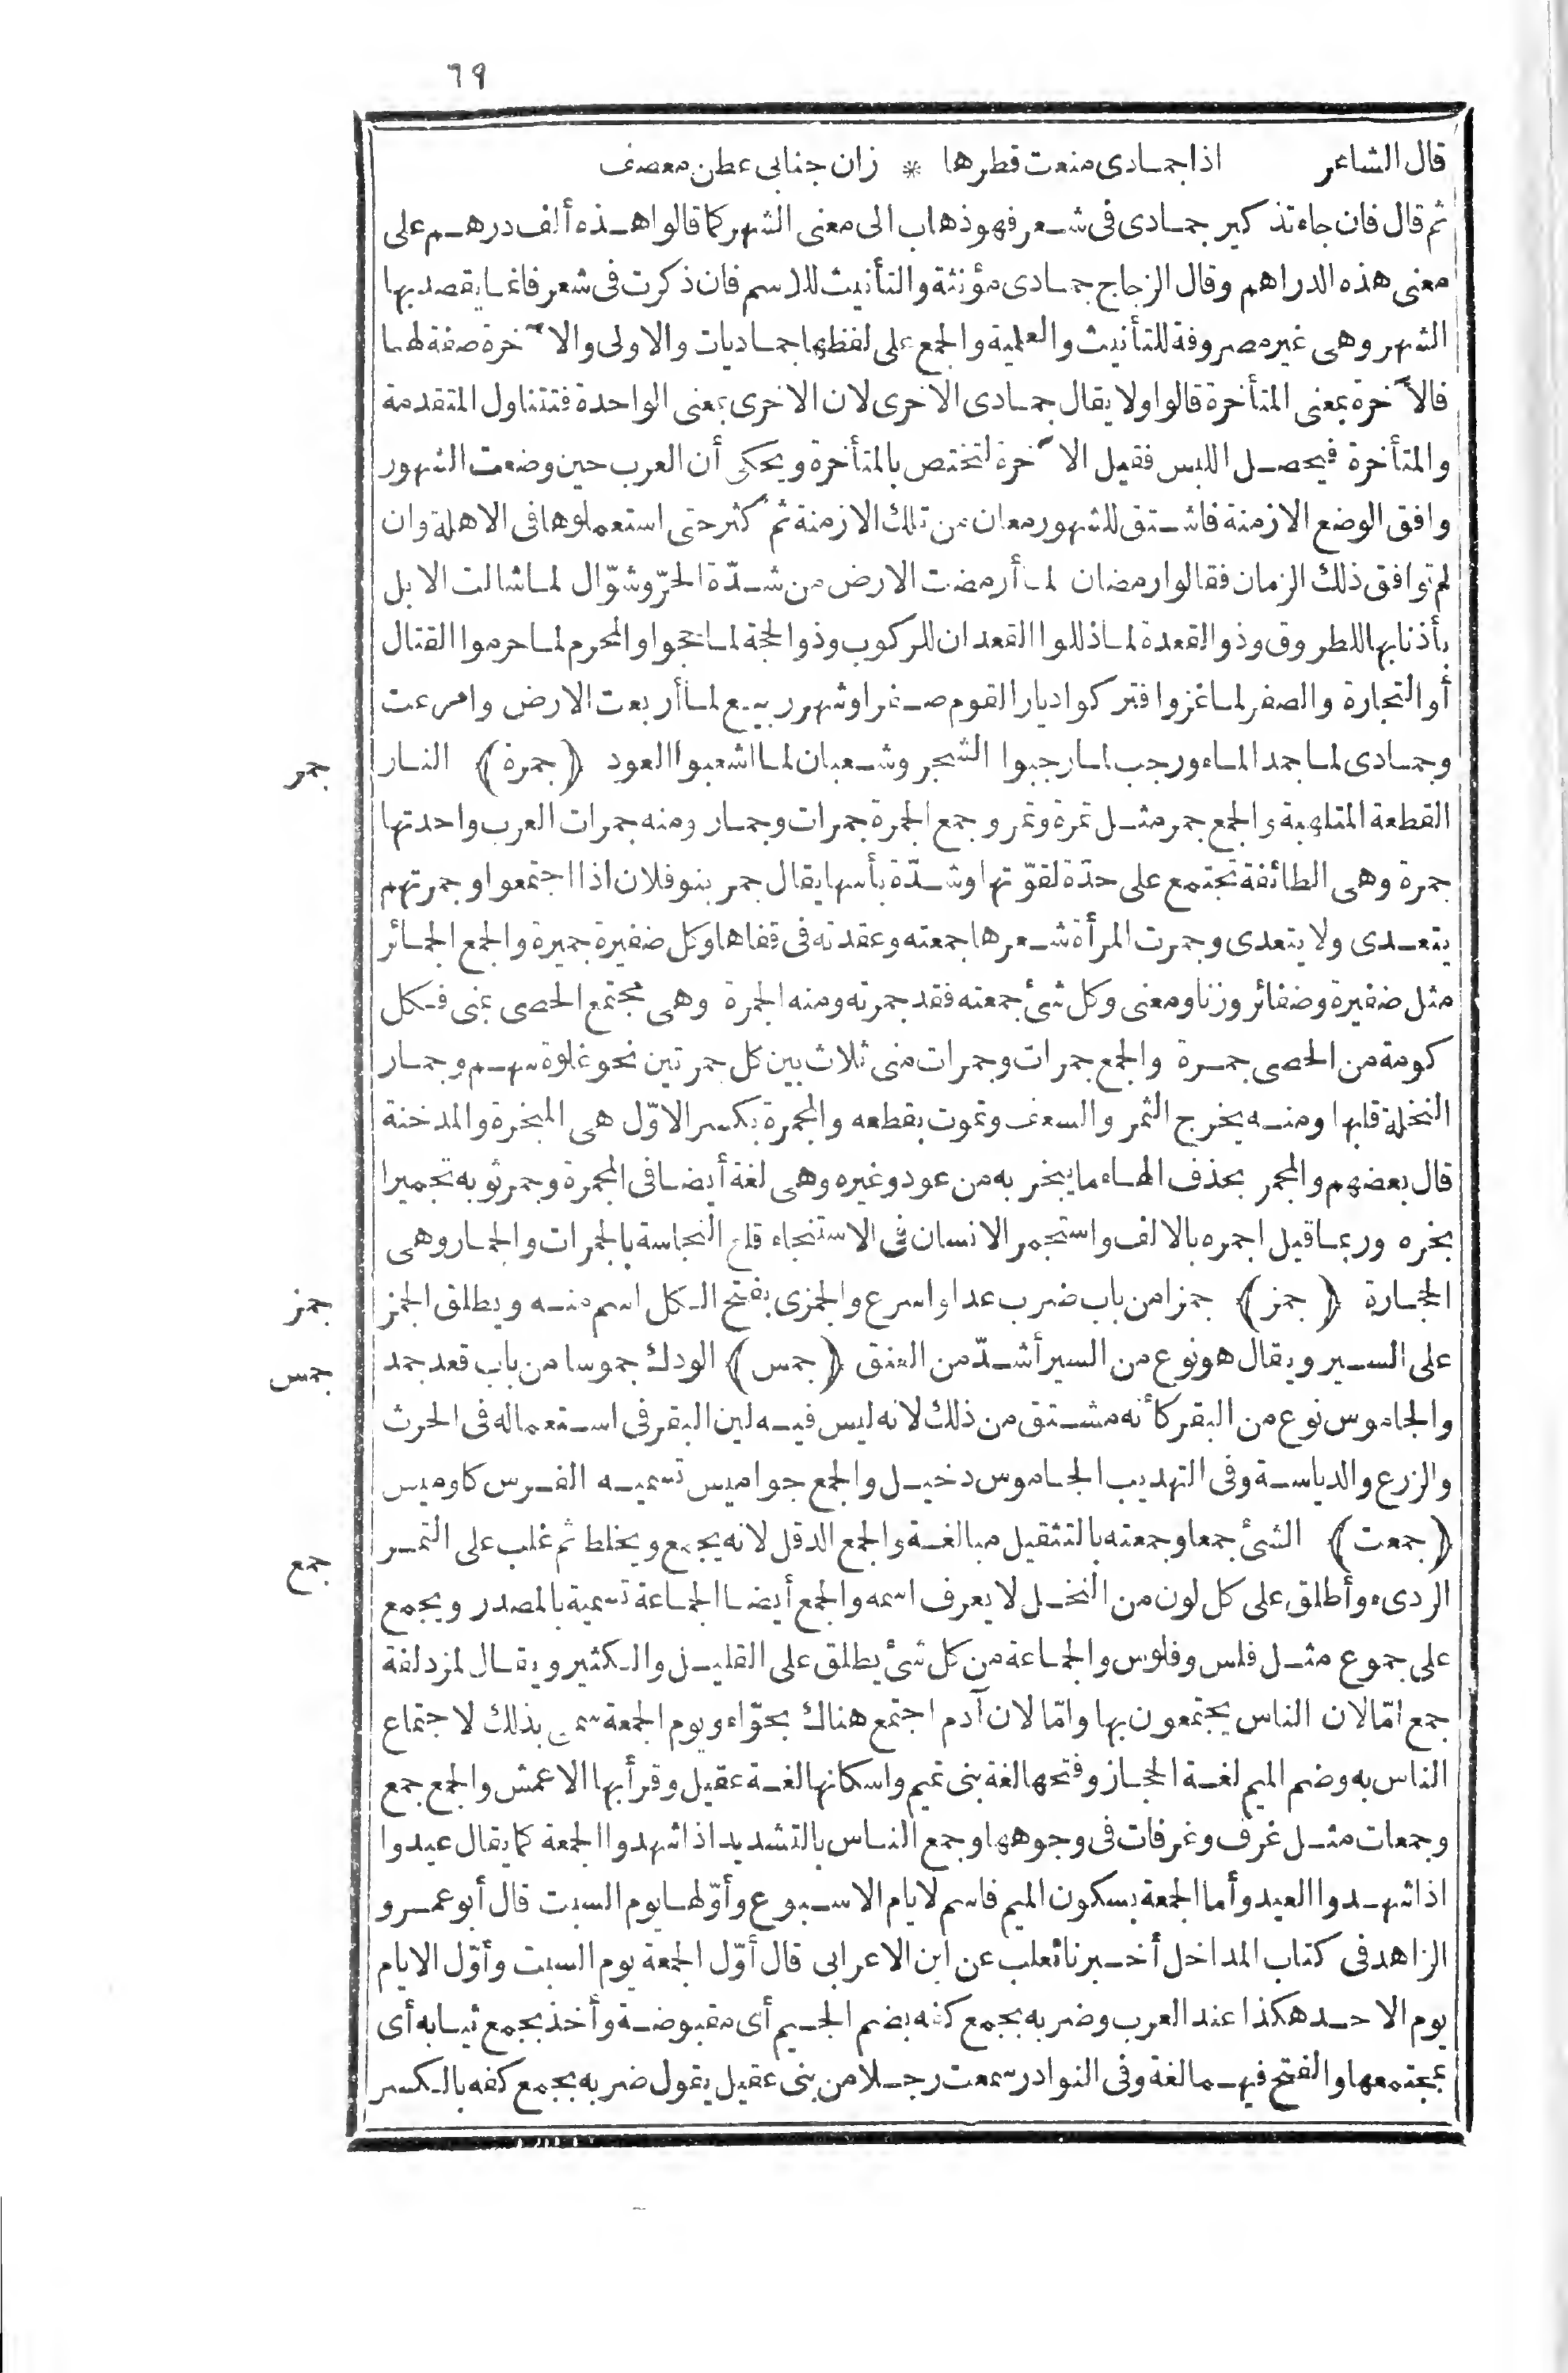 ٦٩
قال الشاعر اذا جمادى منعت قطرها * زان جنابى عطن معصف
ثم قال فان جاء تذكير جمادى فى شعر فهو ذهاب الى معنى الشهر كما قالوا هذه ألف درهم على
معنى هذه الدراهم وقال الزجاج جمادى مؤنثة والتأنيث للاسم فان ذكرت فى شعر فانما يقصد بها
الشهر وهى غير مصروفة للتأنيث والعلمية والجمع على لفظها جماديات والاولى والآخرة صفة لها
فالآخرة بمعنى المتأخرة قالوا ولا يقال جمادى الاخرى لان الاخرى بمعنى الواحدة فتتناول المتقدمة
والمتأخرة فيحصل اللبس فقيل الآخرة لتختص بالمتأخرة ويحكى أن العرب حين وضعت الشهور
وافق الوضع الازمنة فاشتق للشهور معان من تلك الازمنة ثم كثر حتى استعملوها فى الاهلة وان
لم توافق ذلك الزمان فقالوا رمضان لما أرمضت الارض من شدّة الحرّ وشوّال لما شالت الابل
بأذنابها للطروق وذو القعدة لما ذللوا القعدان للركوب وذو الحجة لما حجوا والمحرم لما حرموا القتال
أو التجارة والصفر لما غزوا فتركوا ديار القوم صفرا وشهر ربيع لما أربعت الارض وامرعت
وجمادى لما جمد الماء ورجب لما رجبوا الشجر وشعبان لما اشعبوا العود (جمرة) النار
جمر
القطعة المتلهبة والجمع جمر مثل تمرة وتمر وجمع الجمرة جمرات وجمار ومنه جمرات العرب واحدتها
جمرة وهى الطائفة تجتمع على حدّة لقوّتها وشدّة بأسها يقال جمر بنو فلان اذا اجتمعوا وجمرتهم
يتعدى ولا يتعدى وجمرت المرأة شعرها جمعته وعقدته فى قفاها وكل ضفيرة جميرة والجمع الجمائر
مثل ضفيرة وضفائر وزنا ومعنى وكل شئ جمعته فقد جمرته ومنه الجمرة وهى مجتمع الحصى بمنى فكل
كومة من الحصى جمرة والجمع جمرات وجمرات منى ثلاث بين كل جمرتين نحو غلوة سهم وجمار
النخلة قلبها ومنه يخرج الثمر والسعف وتموت بقطعه والمجمرة بكسر الاوّل هى المبخرة والمدخنة
قال بعضهم والمجمر بحذف الهاء ما يبخر به من عود وغيره وهى لغة أيضا فى المجمرة وجمر ثوبه تجميرا
بخره وربما قيل اجمره بالالف واستجمر الانسان فى الاستنجاء قلع النجاسة بالجمرات والجمار وهى
الحجارة (جمز) جمزا من باب ضرب عدا واسرع والجمزى بفتح الكل اسم منه ويطلق الجمز
جمز
على السير ويقال هو نوع من السير أشدّ من العنق (جمس) الودك جموسا من باب قعد جمد
جمس
والجاموس نوع من البقر كأنه مشتق من ذلك لانه ليس فيه لين البقر فى استعماله فى الحرث
والزرع والدياسة وفى التهذيب الجاموس دخيل والجمع جواميس تسميه الفرس كاوميس
(جمعت) الشئ جمعا وجمعته بالتثقيل مبالغة والجمع الدقل لانه يجمع ويخلط ثم غلب على التمر
جمع
الردىء وأطلق على كل لون من النخل لا يعرف اسمه والجمع أيضا الجماعة تسمية بالمصدر ويجمع
على جموع مثل فلس وفلوس والجماعة من كل شئ يطلق على القليل والكثير ويقال لمزدلفة
جمع امّا لان الناس يجتمعون بها وامّا لان آدم اجتمع هناك بحوّاء ويوم الجمعة سمى بذلك لاجتماع
الناس به وضم الميم لغة الحجاز وفتحها لغة بنى تميم واسكانها لغة عقيل وقرأ بها الاعمش والجمع جمع
وجمعات مثل غرف وغرفات فى وجوهها وجمع الناس بالتشديد اذا شهدوا الجمعة كما يقال عيدوا
اذا شهدوا العيد وأما الجمعة بسكون الميم فاسم لايام الاسبوع وأوّلها يوم السبت قال أبو عمرو
الزاهد فى كتاب المداخل أخبرنا ثعلب عن ابن الاعرابى قال أوّل الجمعة يوم السبت وأوّل الايام
يوم الاحد هكذا عند العرب وضربه بجمع كفه بضم الجيم أى مقبوضة وأخذ بجمع ثيابه أى
بمجتمعها والفتح فيهما لغة وفى النوادر سمعت رجلا من بنى عقيل يقول ضربه بجمع كفه بالكسر